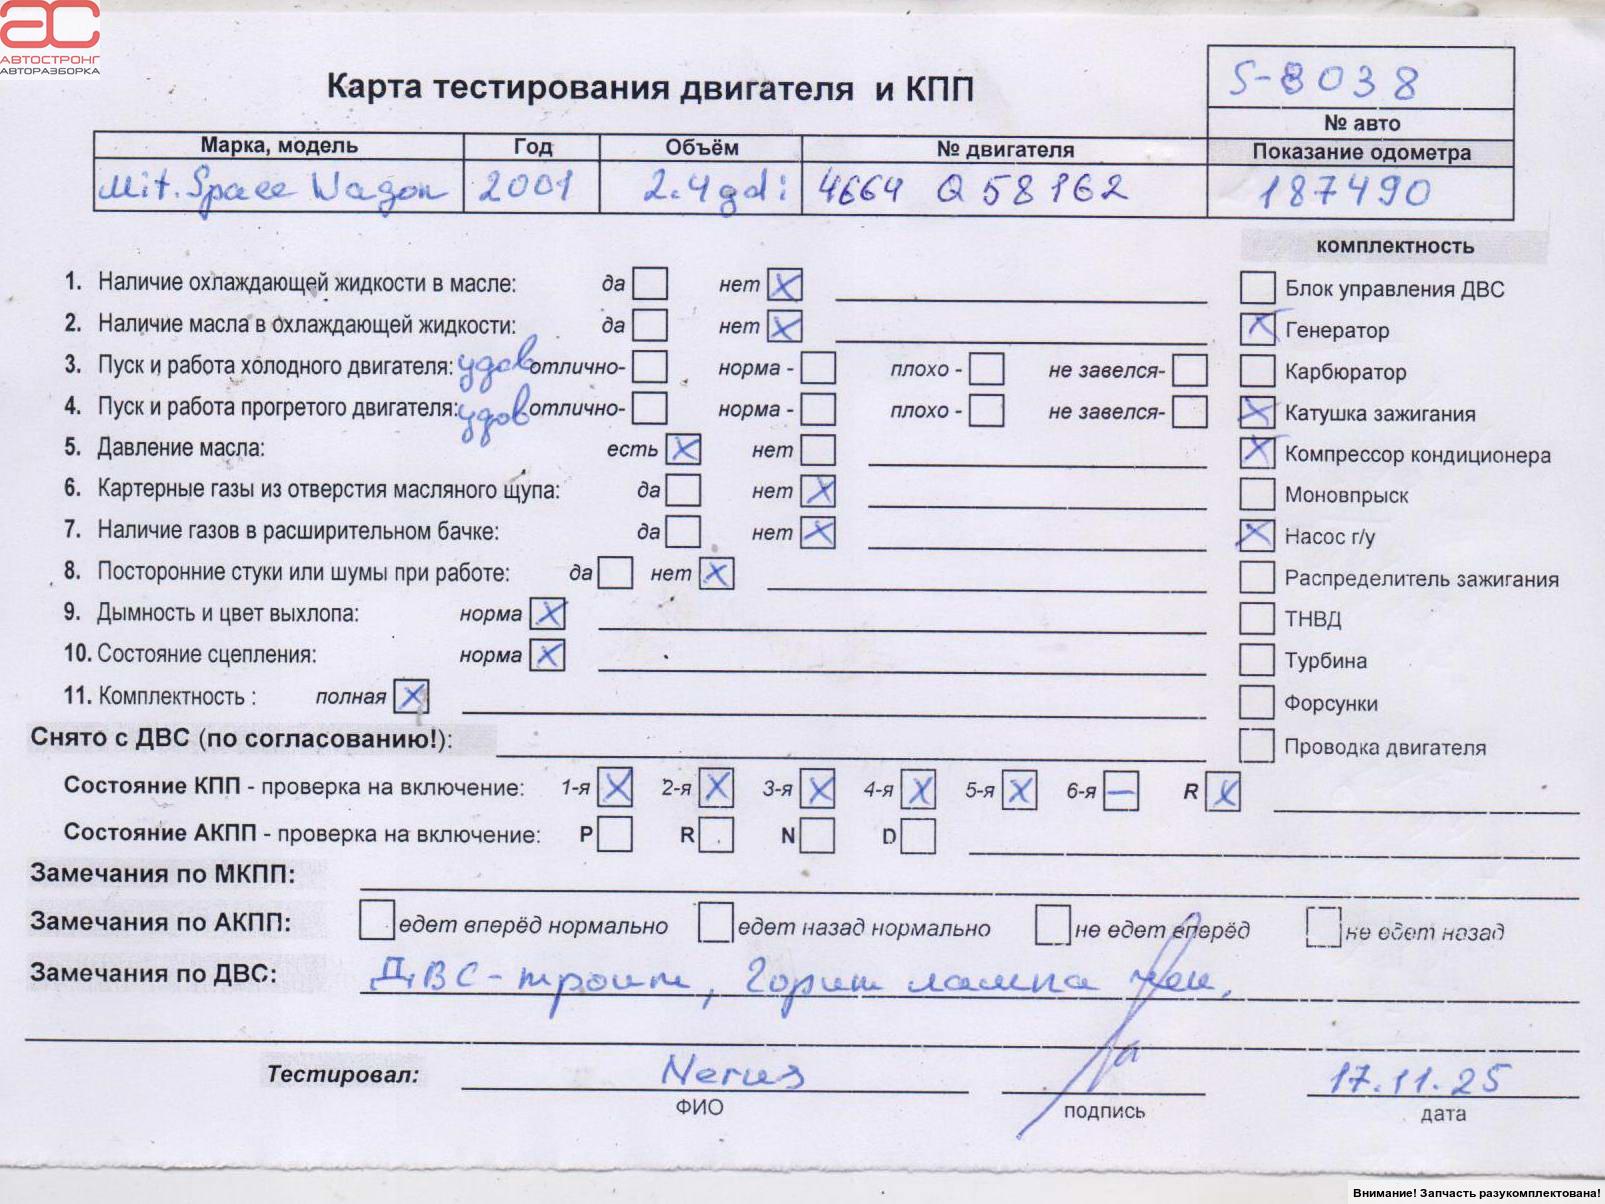 АС
АВТОСТРОНГ
АВТОРАЗБОРКА
Карта тестирования двигателя и КПП
S-8038
№ авто
Марка, модель Год Объём № двигателя Показание одометра
Mit. Space Wagon 2001 2.4 gdi 4G64 Q58162 187490
комплектность
1. Наличие охлаждающей жидкости в масле: да нет X
Блок управления ДВС
2. Наличие масла в охлаждающей жидкости: да нет X
X Генератор
3. Пуск и работа холодного двигателя: удов отлично- норма - плохо - не завелся-
Карбюратор
4. Пуск и работа прогретого двигателя: удов отлично- норма - плохо - не завелся-
X Катушка зажигания
5. Давление масла: есть X нет
X Компрессор кондиционера
6. Картерные газы из отверстия масляного щупа: да нет X
Моновпрыск
7. Наличие газов в расширительном бачке: да нет X
X Насос г/у
8. Посторонние стуки или шумы при работе: да нет X
Распределитель зажигания
9. Дымность и цвет выхлопа: норма X
ТНВД
10. Состояние сцепления: норма X
Турбина
11. Комплектность : полная X
Форсунки
Снято с ДВС (по согласованию!):
Проводка двигателя
Состояние КПП - проверка на включение: 1-я X 2-я X 3-я X 4-я X 5-я X 6-я — R X
Состояние АКПП - проверка на включение: P R N D
Замечания по МКПП:
Замечания по АКПП: едет вперёд нормально едет назад нормально не едет вперёд не едет назад
Замечания по ДВС: ДВС - троит, Горит лампа чек.
Тестировал: 17.11.25
ФИО подпись дата
Внимание! Запчасть разукомплектована!